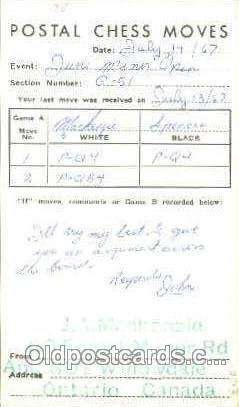 POSTAL CHESS MOVES
Date: July 14/67
Event: Open
Section Number: 6-51
Your last move was received on July 13/67
GAME A Mackenzie Spencer
Move No. WHITE BLACK
1 P-Q4 P-Q4
2 P-QB4
"If" moves, comments or Game B recorded below:
I'll try my best to give
you an argument across
the board.
Regards,
John
J. Mackenzie
Rd
From
Oldpostcards.com
Ontario, Canada